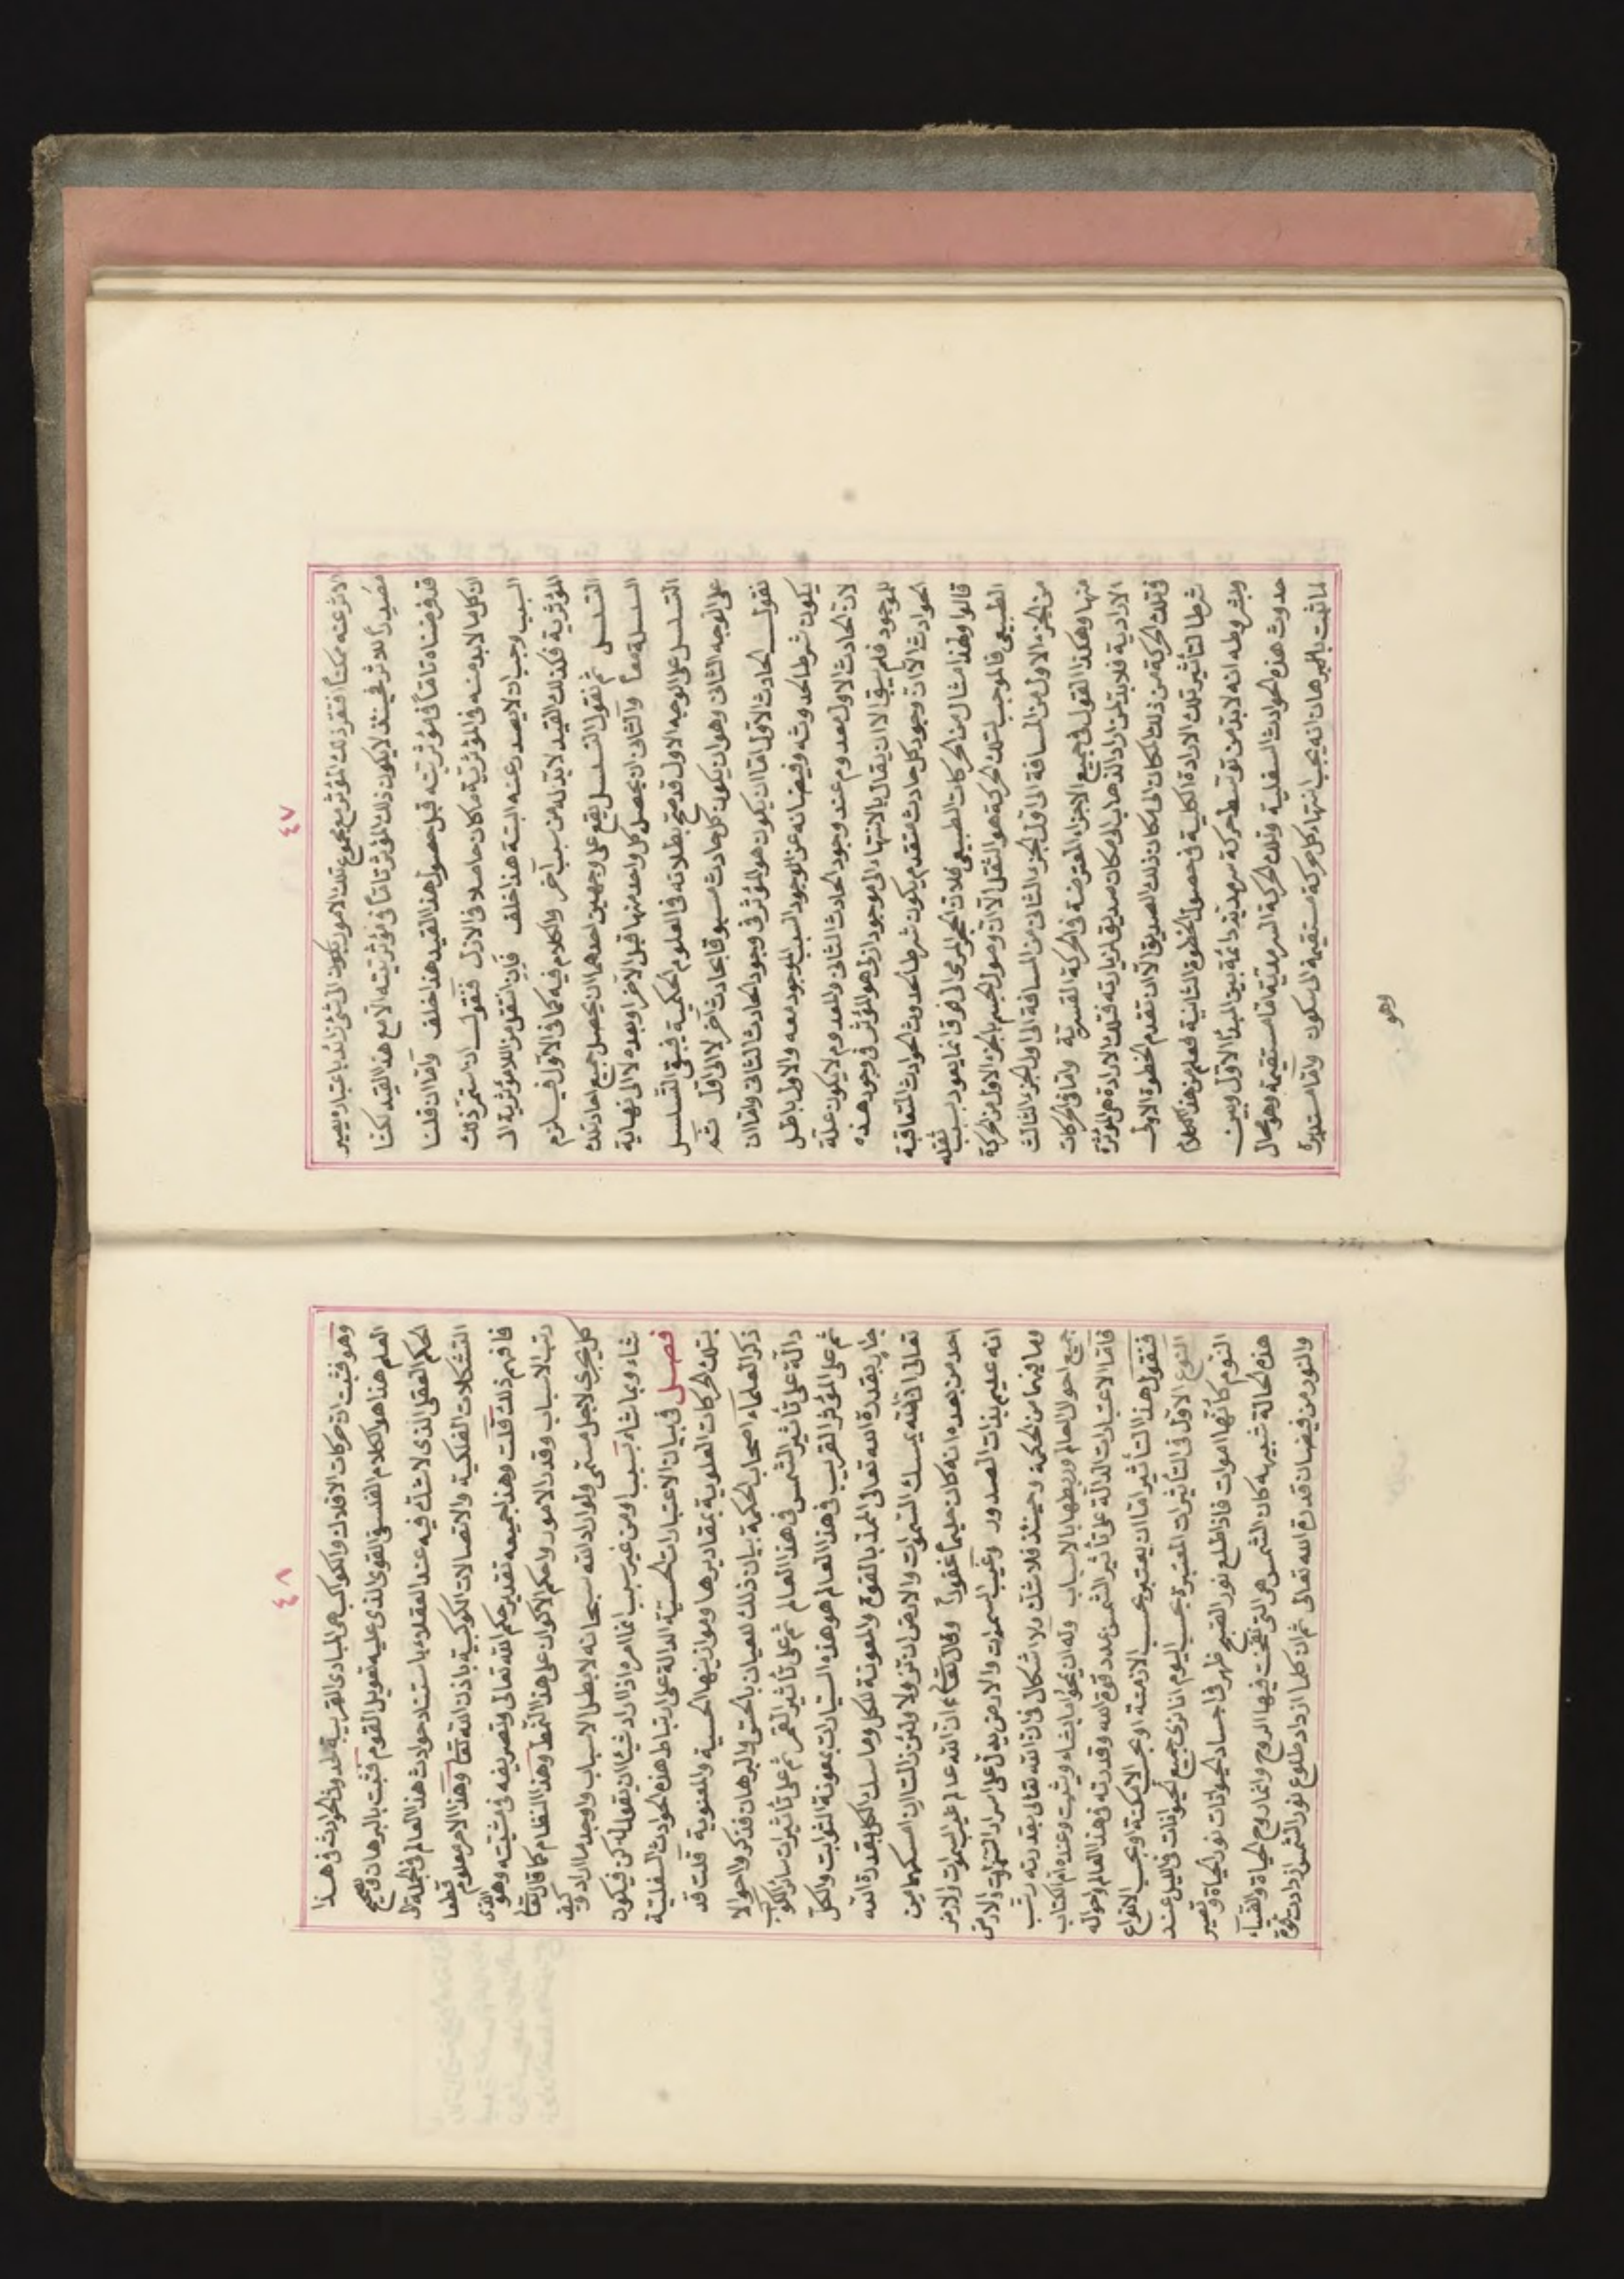 ٤٧
الاثر عنه ممكنا فتقرر ذلك المؤثر مع مجموع تلك الامور يكون الى شئ زائد باعتباره يصير
مصدرا للاثر فحينئذ لا يكون ذلك المؤثر تاما فى مؤثريته الا مع هذا القيد لكنا
قد فرضناه تاما فى مؤثريته قبل حصول هذا القيد هذا خلف واما ان قلنا
ان كل ما لابد منه فى المؤثرية ما كان حاصلا فى الازل فنقول ان استمر ذلك
السبب وجب ان لا يصدر عنه البتة هذا خلف فان انتقل من اللامؤثرية الى
المؤثرية فكذلك القيد لابد له من سبب آخر والكلام فيه كما فى الاول فيلزم
التسلسل ثم نقول التسلسل يقع على وجهين احدهما ان يحصل جميع احاد تلك
السلسلة معا والثانى ان يحصل كل واحد منها قبل الآخر او بعده لا الى نهاية
التسلسل على الوجه الاول قد صح بطلانه فى العلوم الحكمية فبقى التسلسل
على الوجه الثانى وهو ان يكون كل حادث مسبوقا بحادث آخر لا الى اول ثم
نقول الحادث الاول اما ان يكون هو المؤثر فى وجود الحادث الثانى واما ان
يكون شرطا لحدوثه وفيضانه عن الوجود السبب الموجود معه والاول باطل
لان الحادث الاول معدوم عند وجود الحادث الثانى والمعدوم لا يكون علة
للموجود فلم يبق الا ان يقال بالانتهاء الى موجود ازلى هو المؤثر فى وجود هذه
الحوادث الا ان وجود كل حادث متقدم يكون شرطا لحدوث الحوادث المتعاقبة
قالوا ولهذا مثال من الحركات الطبيعى فلان الحجر المرمى الى فوق انما يعود بسبب ثقله
الطبيعى فالموجب لتلك الحركة هو الثقل الا ان وصول الجسم بالجزء الاول من الحركة
من الجزء الاول من المسافة الى اول الجزء الثانى من المسافة الى اول الجزء الثالث
منها وهكذا القول فى جميع الاجزاء المفترضة فى الحركة القسرية واما فى الحركات
الارادية فلا بد لمن اراد الذهاب الى مكان صديق لزيارته فتلك الارادة هى المؤثرة
فى تلك الحركة من ذلك المكان الى مكان ذلك الصديق الا ان تقدم الخطوة الاولى
شرط لتأثير تلك الارادة الكلية فى حصول الخطوة الثانية فعلم من هذا الكلام
وبشروطه انه لابد من توسط حركة سرمدية دائمة بين المبدأ الاول وبين
حدوث هذه الحوادث السفلية وتلك الحركة السرمدية اما مستقيمة وهو محال
لما ثبت بالبرهان انه يجب انتهاء كل حركة مستقيمة الى سكون واما مستديرة
وهو
٤٨
وهو فثبت ان حركات الافلاك والكواكب هى المبادى القريبة لحدوث الحوادث فى هذا
العلم هذا هو الكلام الفلسفى القوى الذى عليه تعويل القوم فثبت بالبرهان صحيح
الحكم العقلى الذى لا شك فيه عند العقلاء باستناد حوادث هذا العالم فى الجملة الى
التشكلات الفلكية والاتصالات الكوكبية باذن الله تعا وهذا الامر معلوم قطعا
فافهم ذلك قلت وهذا جميعه تقدير حكم الله تعالى وتصريفه فى مشيئته وهو الذى
رتب الاسباب وقدر الامور واحكم الاكوان على هذا النمط وهذا النظام كما قال تعا
كل يجرى لاجل مسمى ولو اراد الله سبحانه لابطل الاسباب واوجد ما اراد وكيف
شاء وبما شاء بسبب ومن غير سبب انما امره اذا اراد شيئا ان يقول له كن فيكون
فصل فى بيان الاعتبارات الحسية الدالة على ارتباط هذه الحوادث السفلية
بتلك الحركات العلوية بمقاديرها وموازينها الحسية والمعنوية قلت قد
ذكر العلماء اصحاب الحكمة بيان ذلك للعيان بالحس والبرهان فذكروا احوالا
دالة على تأثير الشمس فى هذا العالم ثم على تأثير القمر ثم على تأثيرات سائر الكواكب
ثم على المؤثر القريب فى هذا العالم هو هذه السيارات بمعونة الثوابت والكل
جار بقدرة الله تعالى الممد بالقوة والمعونة لكل وماسك الكل بقدرة الله
تعالى ان الله يمسك السموات والارض ان تزولا ولئن زالتا ان امسكهما من
احد من بعده انه كان حليما غفورا وقال تعا ان الله عالم غيب السموات والارض
انه عليم بذات الصدور وغيب السموات والارض يدل على اسرار السموات والارض
وما فيهما من الحكمة وحينئذ فلا شك ولا اشكال فى ان الله تعالى بقدرته رتب
جميع احوال العالم وربطها بالاسباب وله ان يمحو ما يشاء ويثبت وعنده ام الكتاب
فاما الاعتبارات الدالة على تأثير الشمس عدد قوة الله وقدرته فى هذا العالم واحواله
فنقول هذا التأثير اما ان يعتبر بحسب الازمنة او بحسب الامكنة وبحسب الانواع
النوع الاول فى التأثيرات المعتبرة بحسب اليوم انا نرى جميع الحيوانات فى الليل عند
النوم كأنها اموات فاذا طلع نور الصبح ظهر فى اجساد الحيوانات نور الحياة وتصير
هذه الحالة شبيهه كأن الشمس هى التى نفخت فيها الروح وانما روح الحياة والضياء
والنور من فيضان قدرة الله تعالى ثم ان كلما ازداد طلوع نور الشمس ازدادت قوة